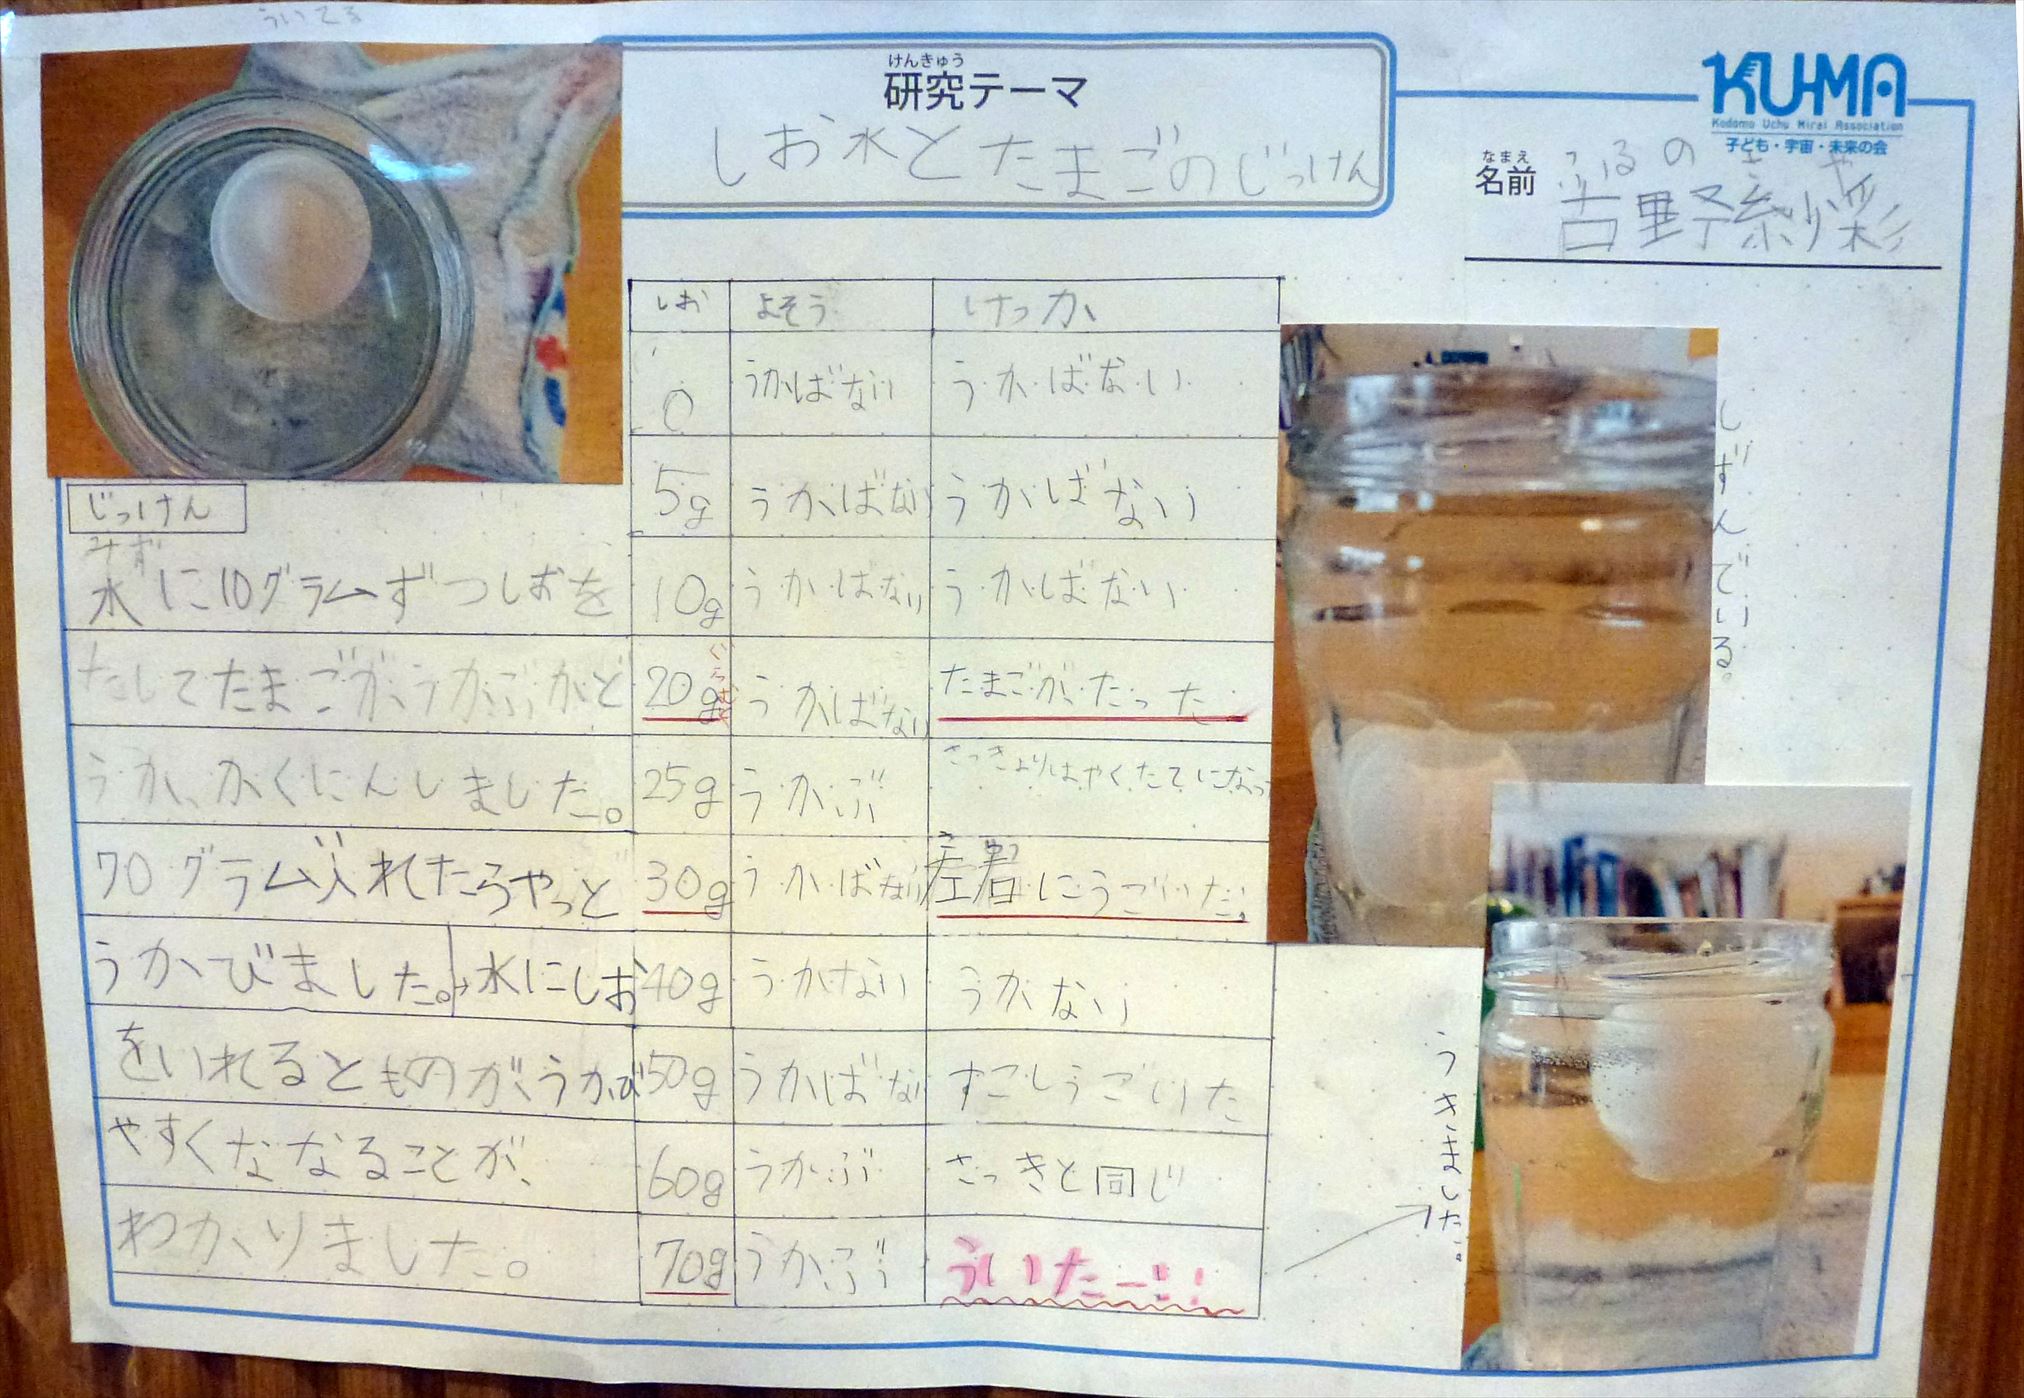 ういてる
けんきゅう
研究テーマ
しお水とたまごのじっけん
KUMA
Kodomo Uchu Mirai Association
子ども・宇宙・未来の会
なまえ
名前
ふるの さや
古野紗彩
しお よそう けっか
0 うかばない うかばない
5g うかばない うかばない
10g うかばない うかばない
20g うかばない たまごがたった
25g うかぶ さっきよりはやくたてになっ
30g うかばない にうごいた。
40g うかない うかない
50g うかばない すこしうごいた
60g うかぶ さっきと同じ
70g うかぶ ういたー!!
じっけん
みず
水に10グラムずつしおを
たしてたまごがうかぶかど
うか、かくにんしました。
70グラム入れたらやっと
うかびました。→水にしお
をいれるとものがうかび
やすくななることが、
わかりました。
しずんでいる。
うきました。